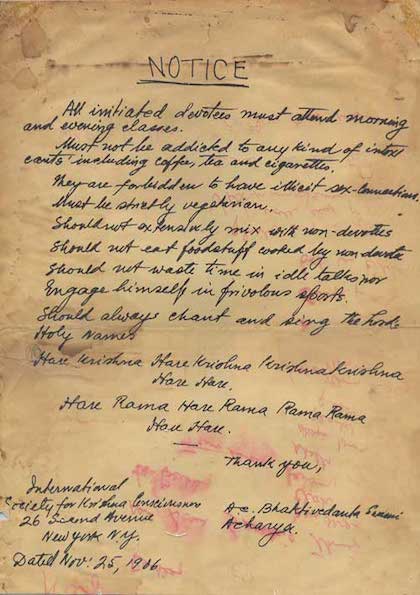 NOTICE
All initiated devotees must attend morning
and evening classes.
Must not be addicted to any kind of intoxi
cants including coffee, tea and cigarettes.
They are forbidden to have illicit sex-connections.
Must be strictly vegetarian.
Should not extensively mix with non-devotees
Should not eat foodstuff cooked by non devotees
Should not waste time in idle talks nor
Engage himself in frivolous sports.
Should always chant and sing the Lord's
Holy Names
Hare Krishna Hare Krishna Krishna Krishna
Hare Hare.
Hare Rama Hare Rama Rama Rama
Hare Hare.
Thank you,
International
Society for Krishna Consciousness
26 Second Avenue
New York N.Y.
Dated Nov. 25, 1966
A.C. Bhaktivedanta Swami
Acharya.